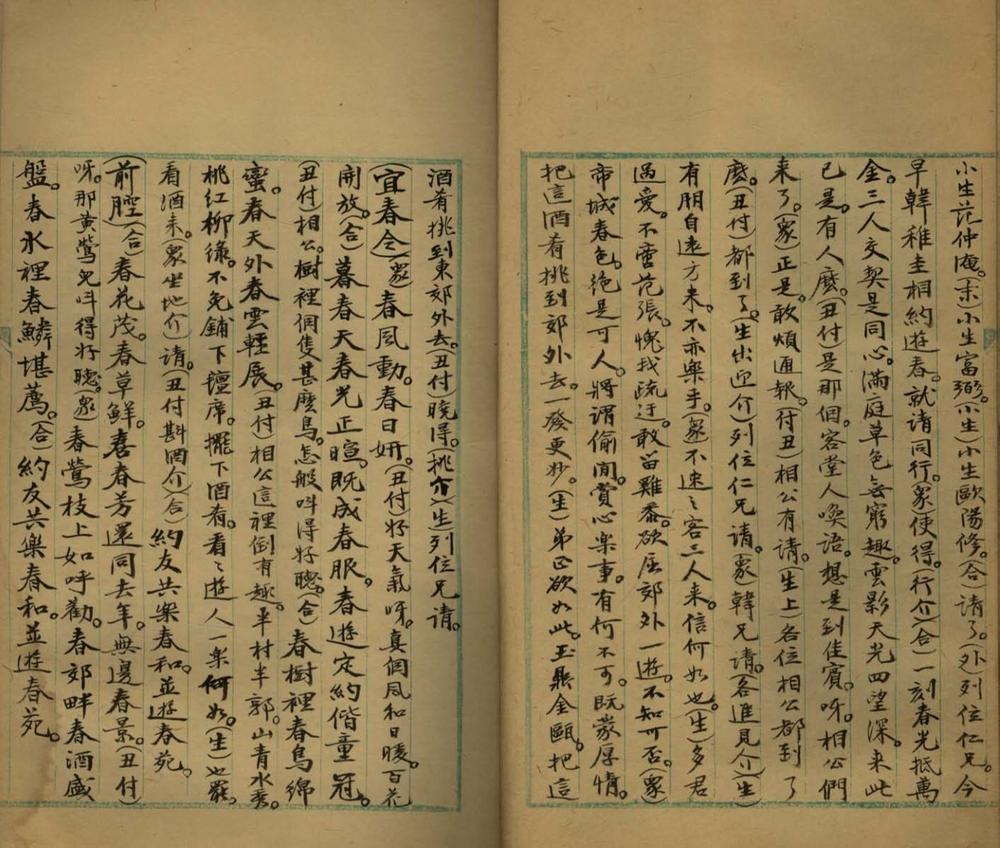 小生范仲淹。(末)小生富弼。(小生)小生歐陽修。(合)請了。(外)列位仁兄今
早韓稚圭相約遊春。就请同行。(眾)使得。(行介)(合)一刻春光抵萬
金。三人交契是同心。滿庭草色無窮趣。雲影天光四望深。来此
已是。有人麼。(丑付)是那個。客堂人喚语。想是到佳賓。呀。相公們
来了。(眾)正是。敢煩通報。(付丑)相公有请。(生上)各位相公都到了
麼。(丑付)都到了。(生出迎介)列位仁兄请。(眾)韓兄请。(各進見介)(生)
有朋自遠方来。不亦樂乎。(眾)不速之客三人来。信何如也。(生)多君
過爱。不啻范張。愧我疏迂。敢留雞黍。欲屈郊外一遊。不知可否。(眾)
帝城春色。絶是可人。將谓偷閒。賞心樂事。有何不可。既蒙厚情。
把這酒肴挑到郊外去。一發更妙。(生)弟正欲如此。玉鼎金甌。把這
酒肴挑到東郊外去。(丑付)曉得。(挑介)(生)列位兄请。
(宜春令)(眾)春風動。春日妍。(丑付)好天氣呀。真個風和日暖。百花
開放。(合)暮春天春光正暄。既成春服。春遊定約偕童冠。
(丑付)相公。樹裡個隻甚麼鳥。怎般呌得好聴。(合)春樹裡春鳥綿
蠻。春天外春雲輕展。(丑付)相公這裡倒有趣。半村半郭。山青水秀。
桃紅柳綠。不免鋪下氊席。擺下酒肴。看看遊人一樂何如。(生)也罷。
看酒来。(眾坐地介)请。(丑付斟酒介)(合)約友共樂春和。並遊春苑。
(前腔)(合)春花茂。春草鮮。喜春芳還同去年。無邊春景。(丑付)
呀。那黄鶯兒呌得好聴。(眾)春鶯枝上如呼勸。春郊畔春酒盛
盤。春水裡春鱗堪薦。(合)約友共樂春和。並遊春苑。